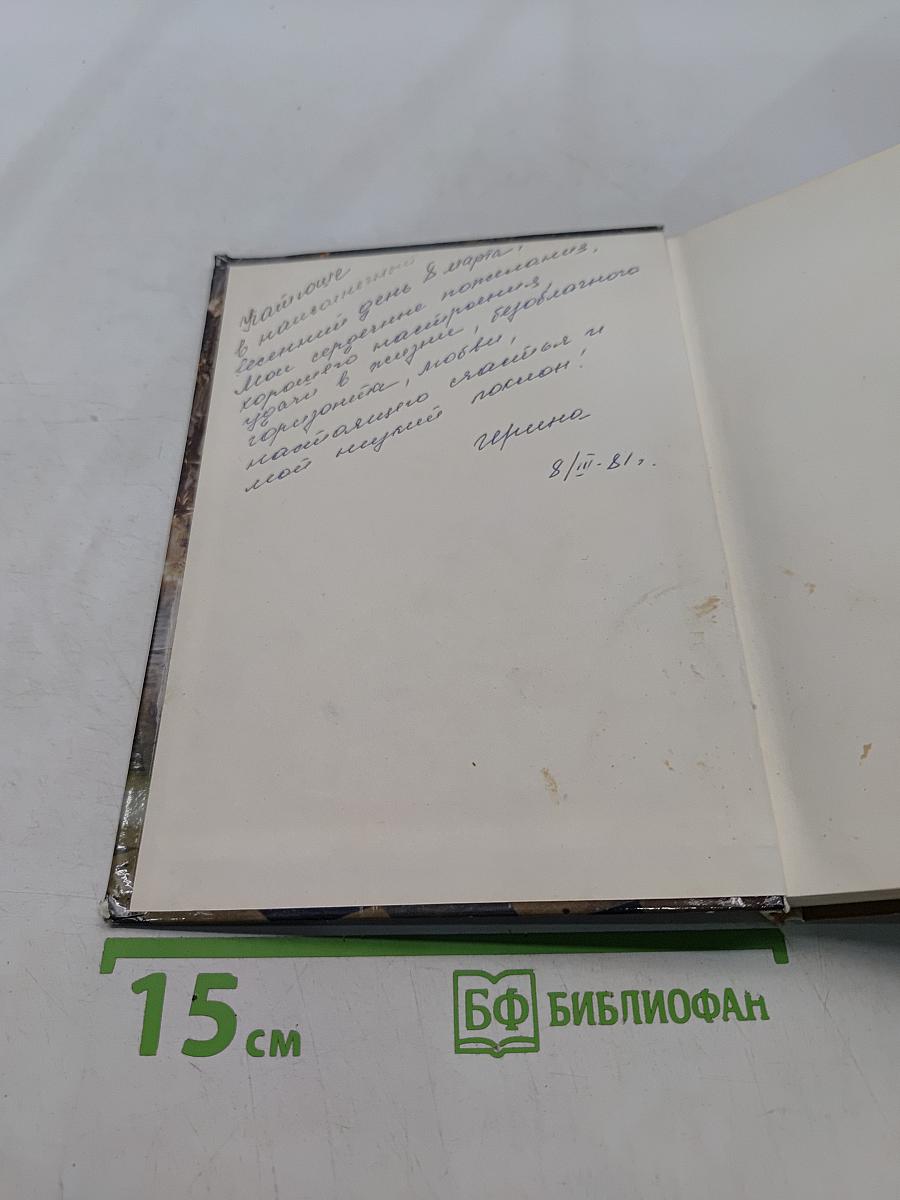 Катюше
в наисолнечный
весенний день 8 марта,
мои сердечные пожелания,
хорошего настроения,
удачи в жизни, безоблачного
горизонта, любви,
настоящего счастья и
мой низкий поклон!
Ирина
8/III-81г.
15 см
БФ БИБЛИОФАН